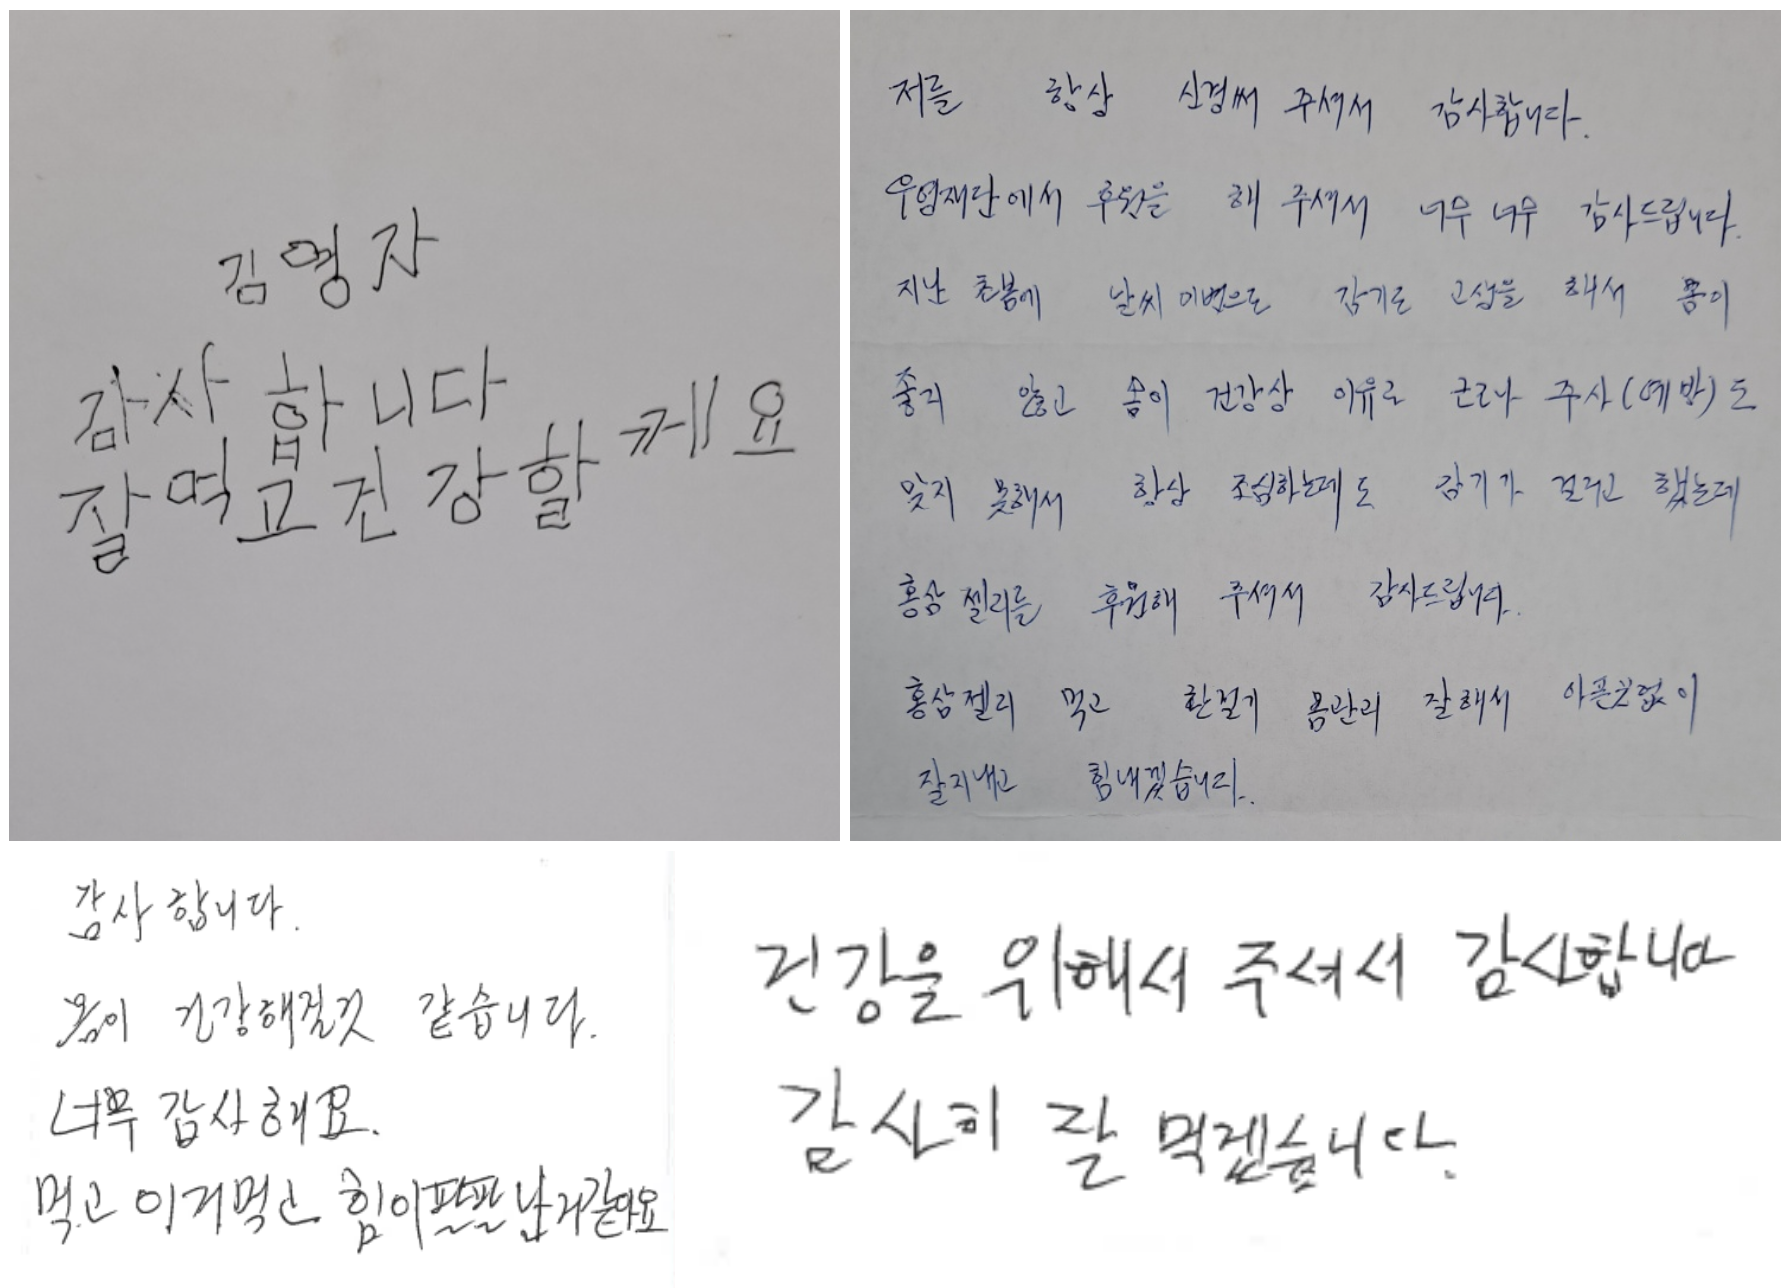 김영자
감사합니다
잘먹고건강할께요
저를 항상 신경써 주셔서 감사합니다.
우엄재단에서 후원을 해 주셔서 너무 너무 감사드립니다.
지난 초봄에 날씨 이변으로 감기로 고생을 해서 몸이
좋지 않고 몸이 건강상 이유로 코로나 주사(예방)도
맞지 못해서 항상 조심하는데도 감기가 걸리고 했는데
홍삼 젤리를 후원해 주셔서 감사드립니다.
홍삼젤리 먹고 환절기 몸관리 잘해서 아픈곳없이
잘지내고 힘내겠습니다.
감사 합니다.
몸이 건강해질것 같습니다.
너무 감사해요.
먹고 이거먹고 힘이팔팔 난거같아요
건강을 위해서 주셔서 감사합니다
감사히 잘 먹겠습니다.